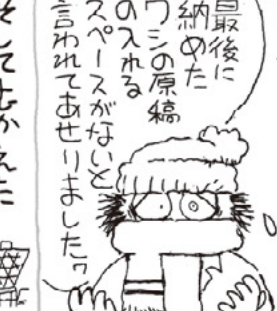 最後に
納めた
ワシの原稿
の入れる
スペースがないと
言われてあせりました。
そしてむかえた